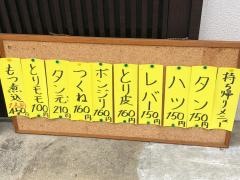 持ち帰りメニュー
タン 150円
ハツ 150円
レバー 150円
とり皮 160円
ボンジリ 160円
つくね 160円
タン元 210円
とりモモ 100円
もつ煮込 450円